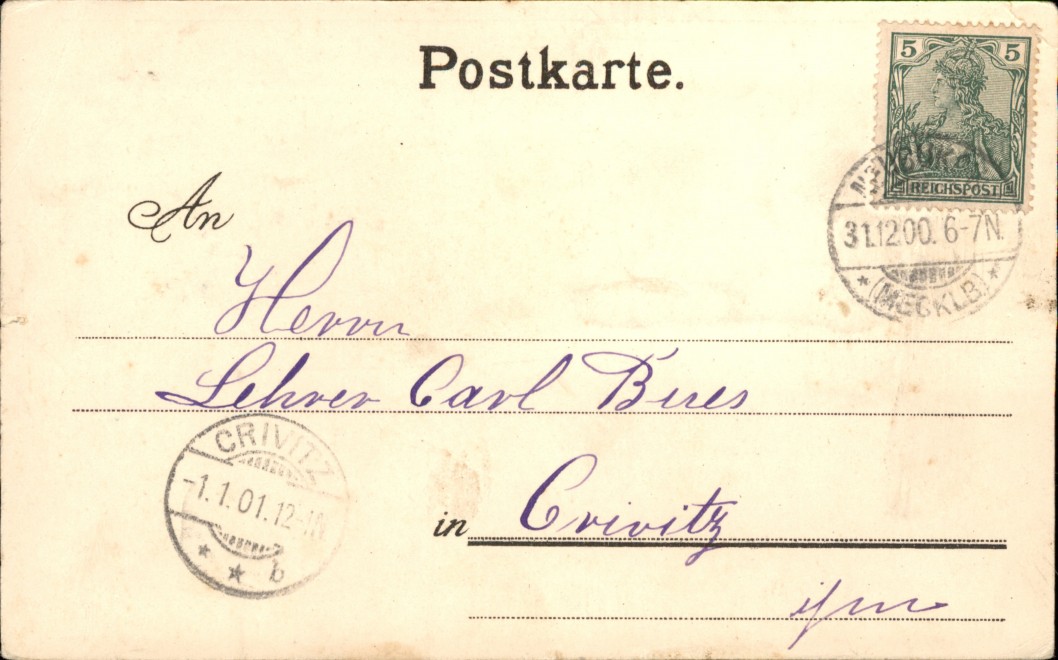 Postkarte.
5 5
REICHSPOST
31.12.00. 6-7N.
(MECKLB)
An
Herrn
Lehrer Carl
CRIVITZ
-1.1.01.12-1N
b
in Crivitz